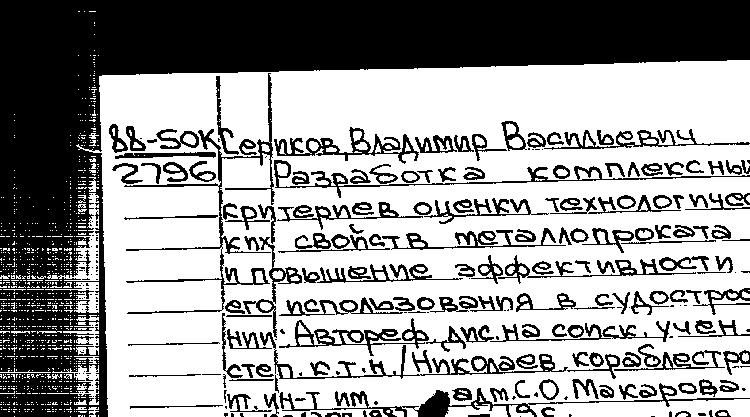 88-50К Сериков, Владимир Васильевич
2796 Разработка комплексны
критериев оценки технологичес
ких свойств металлопроката
и повышение эффективности
его использования в судострое
нии: Автореф. дис. на соиск. учен.
степ. к.т.н./Николаев. кораблестро
ит. ин-т им. адм. С.О. Макарова.